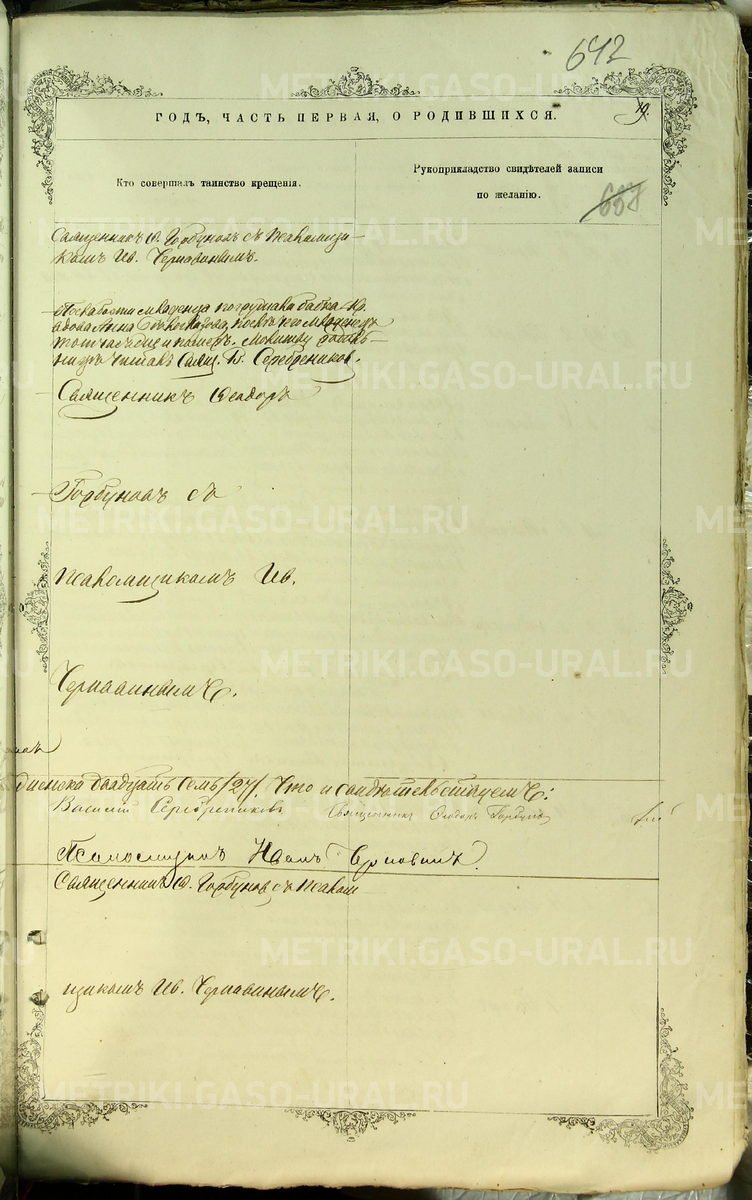 642
19.
ГОДЪ, ЧАСТЬ ПЕРВАЯ, О РОДИВШИХСЯ.
Кто совершалъ таинство крещенія.
Рукоприкладство свидѣтелей записи
по желанію.
658
Священникъ Ѳ. Горбуновъ съ Псаломщи-
комъ Ив. Чернавинымъ.
По слабости младенца погружала бабка Кр.
вдова Анна
тотчасъ же и померъ. Молитву
читалъ Свящ. В. Серебрениковъ.
Священникъ Ѳеодоръ
Горбуновъ съ
Псаломщикомъ Ив.
Чернавинымъ.
двадцать семь /27/. Что и свидѣтельствуемъ:
Василій Серебрениковъ Священникъ Ѳеодоръ Горбуновъ
Псаломщикъ Иванъ Чернавинъ.
Священникъ Ѳ. Горбуновъ съ Псалом
щикомъ Ив. Чернавинымъ.
METRIKI.GASO-URAL.RU